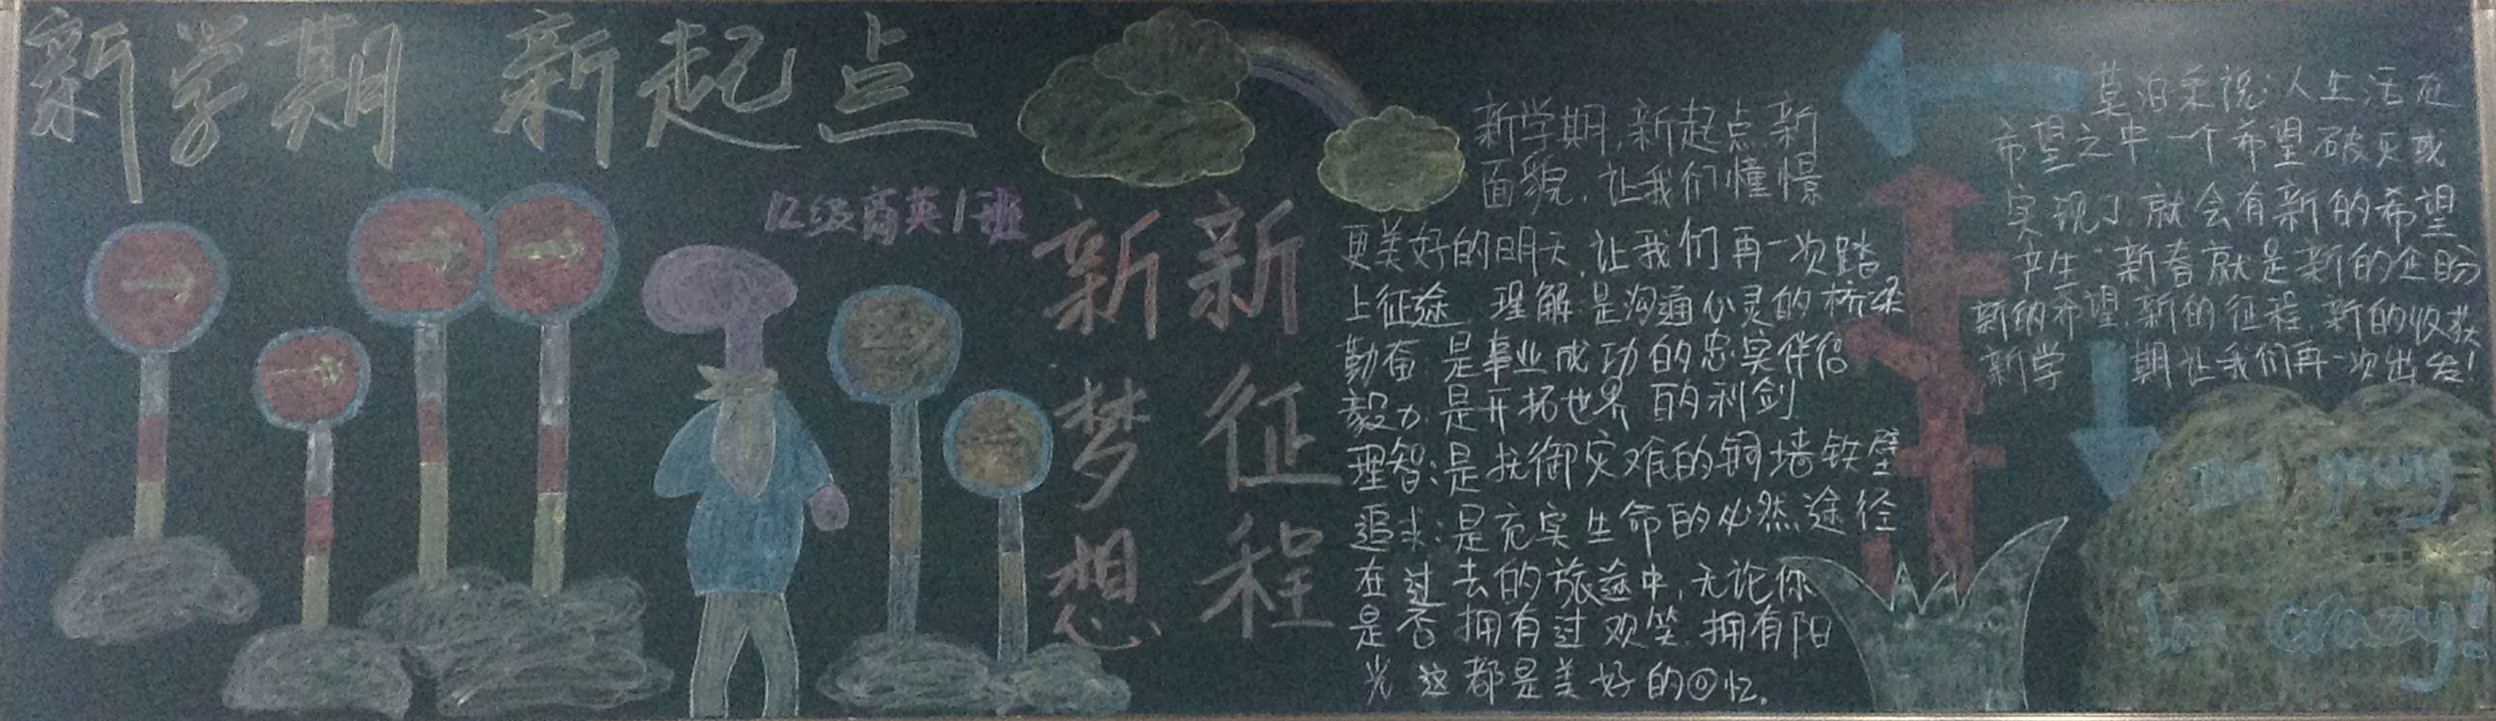 新学期 新起点
12级商英1班
新征程
新梦想
新学期,新起点,新
面貌,让我们憧憬
更美好的明天,让我们再一次踏
上征途 理解:是沟通心灵的桥梁
勤奋:是事业成功的忠实伴侣
毅力:是开拓世界的利剑
理智:是抚御灾难的铜墙铁壁
追求:是充实生命的必然途径
在过去的旅途中,无论你
是否拥有过欢笑,拥有阳
光 这都是美好的回忆。
莫泊桑说:人生活在
希望之中一个希望破灭或
实现了,就会有新的希望
产生 新春就是新的企盼
新的希望,新的征程,新的收获
新学期让我们再一次出发!
I'm young
I'm crazy!